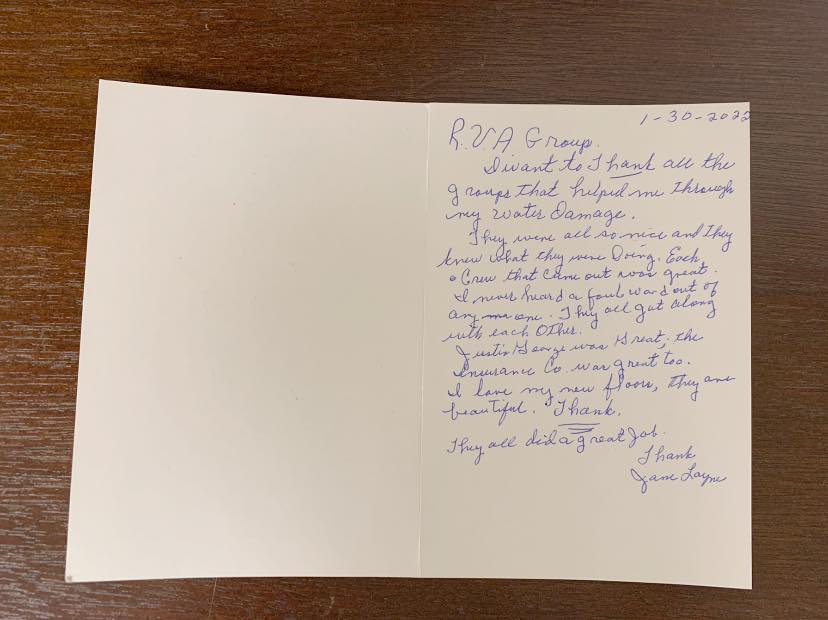 1-30-2022
R.V.A Group.
I want to Thank all the
groups that helped me through
my water Damage.
They were all so nice and They
knew what they were Doing. Each
Crew that came out was great.
I never heard a foul word out of
any one. They all got along
with each Other.
Justin George was Great, the
Insurance Co. was great too.
I love my new floors, They are
beautiful. Thank.
They all did a great Job.
Thank
Jane Layne